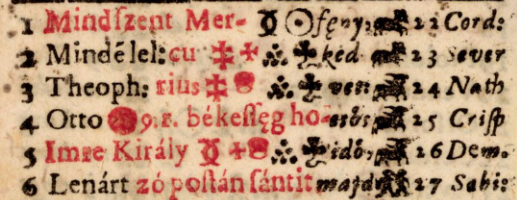 1 Mindſzent Mer- fęny, 22 Cord:
2 Mindé lel: cu ked 23 Sever
3 Theoph: rius ves 24 Nath
4 Otto 9. r. békeſſęg ho- esős 25 Criſp
5 Imre Király idő, 26 Dem.
6 Lenárt zó poſtán ſántit majd 27 Sabi: